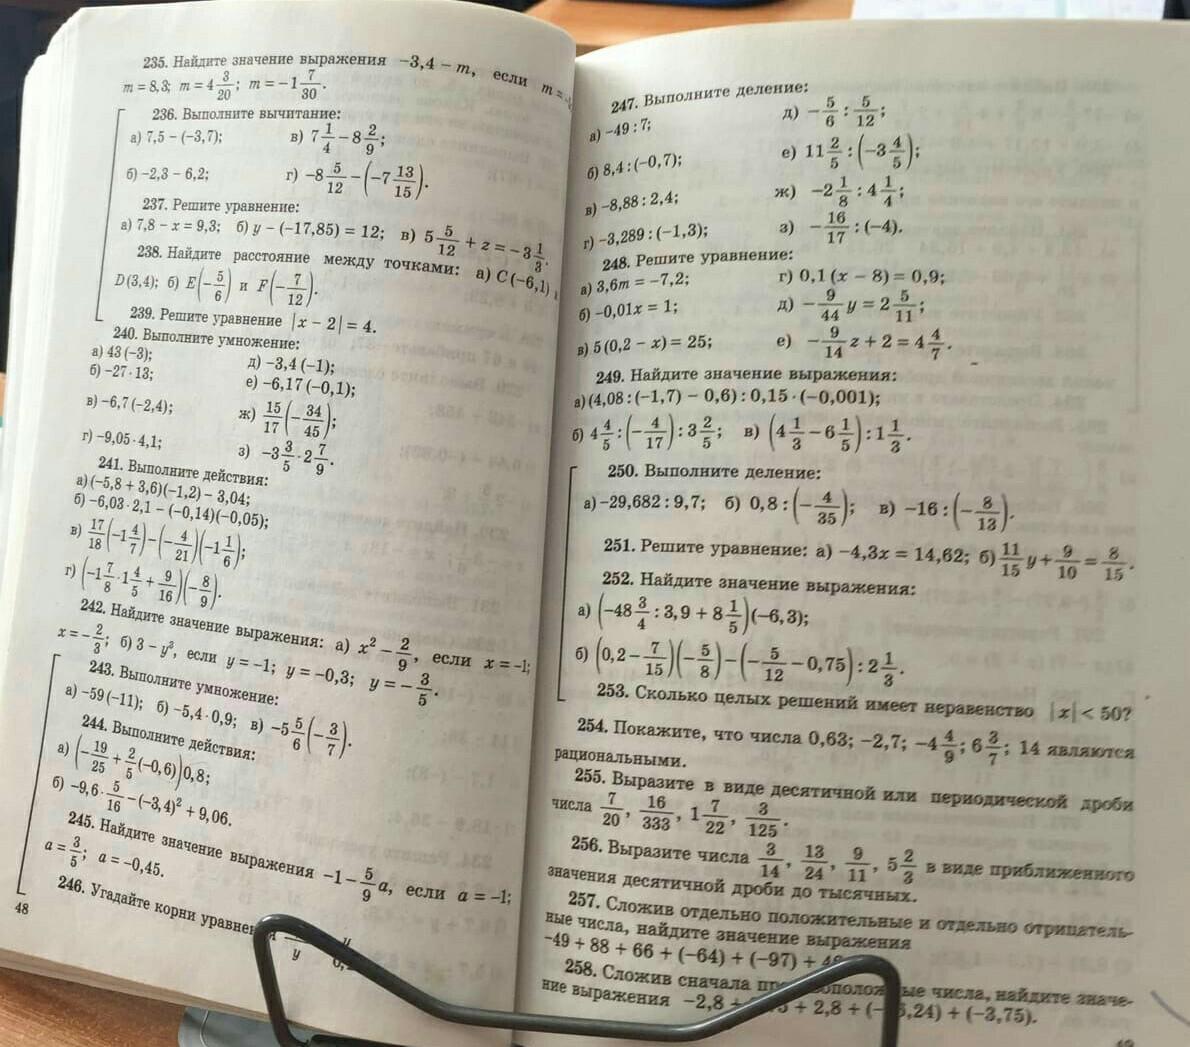 235. Найдите значение выражения −3,4 − m, если m =
m = 8,3; m = 4 3/20; m = −1 7/30.
236. Выполните вычитание:
а) 7,5 − (−3,7); в) 7 1/4 − 8 2/9;
б) −2,3 − 6,2; г) −8 5/12 − (−7 13/15).
237. Решите уравнение:
а) 7,8 − x = 9,3; б) y − (−17,85) = 12; в) 5 5/12 + z = −3 1/3.
238. Найдите расстояние между точками: а) C(−6,1)
D(3,4); б) E(−5/6) и F(−7/12).
239. Решите уравнение |x − 2| = 4.
240. Выполните умножение:
а) 43 (−3); д) −3,4 (−1);
б) −27 · 13; е) −6,17 (−0,1);
в) −6,7 (−2,4); ж) 15/17 (−34/45);
г) −9,05 · 4,1; з) −3 3/5 · 2 7/9.
241. Выполните действия:
а) (−5,8 + 3,6)(−1,2) − 3,04;
б) −6,03 · 2,1 − (−0,14)(−0,05);
в) 17/18 (−1 4/7) − (−4/21)(−1 1/6);
г) (−1 7/8 · 1 4/5 + 9/16)(−8/9).
242. Найдите значение выражения: а) x² − 2/9, если x = −1;
x = −2/3; б) 3 − y³, если y = −1; y = −0,3; y = −3/5.
243. Выполните умножение:
а) −59 (−11); б) −5,4 · 0,9; в) −5 5/6 (−3/7).
244. Выполните действия:
а) (−19/25 + 2/5 (−0,6)) 0,8;
б) −9,6 · 5/16 − (−3,4)² + 9,06.
245. Найдите значение выражения −1 − 5/9 a, если a = −1;
a = 3/5; a = −0,45.
246. Угадайте корни
y
48
247. Выполните деление:
а) −49 : 7; д) −5/6 : 5/12;
б) 8,4 : (−0,7); е) 11 2/5 : (−3 4/5);
в) −8,88 : 2,4; ж) −2 1/8 : 4 1/4;
г) −3,289 : (−1,3); з) −16/17 : (−4).
248. Решите уравнение:
а) 3,6m = −7,2; г) 0,1 (x − 8) = 0,9;
б) −0,01x = 1; д) −9/44 y = 2 5/11;
в) 5 (0,2 − x) = 25; е) −9/14 z + 2 = 4 4/7.
249. Найдите значение выражения:
а) (4,08 : (−1,7) − 0,6) : 0,15 · (−0,001);
б) 4 4/5 : (−4/17) : 3 2/5; в) (4 1/3 − 6 1/5) : 1 1/3.
250. Выполните деление:
а) −29,682 : 9,7; б) 0,8 : (−4/35); в) −16 : (−8/13).
251. Решите уравнение: а) −4,3x = 14,62; б) 11/15 y + 9/10 = 8/15.
252. Найдите значение выражения:
а) (−48 3/4 : 3,9 + 8 1/5)(−6,3);
б) (0,2 − 7/15)(−5/8) − (−5/12 − 0,75) : 2 1/3.
253. Сколько целых решений имеет неравенство |x| < 50?
254. Покажите, что числа 0,63; −2,7; −4 4/9; 6 3/7; 14 являются
рациональными.
255. Выразите в виде десятичной или периодической дроби
числа 7/20, 16/333, 1 7/22, 3/125.
256. Выразите числа 3/14, 13/24, 9/11, 5 2/3 в виде приближенного
значения десятичной дроби до тысячных.
257. Сложив отдельно положительные и отдельно отрицатель-
ные числа, найдите значение выражения
−49 + 88 + 66 + (−64) + (−97) +
258. Сложив сначала числа, найдите значе-
ние выражения −2,8 + + 2,8 + + (−3,75).